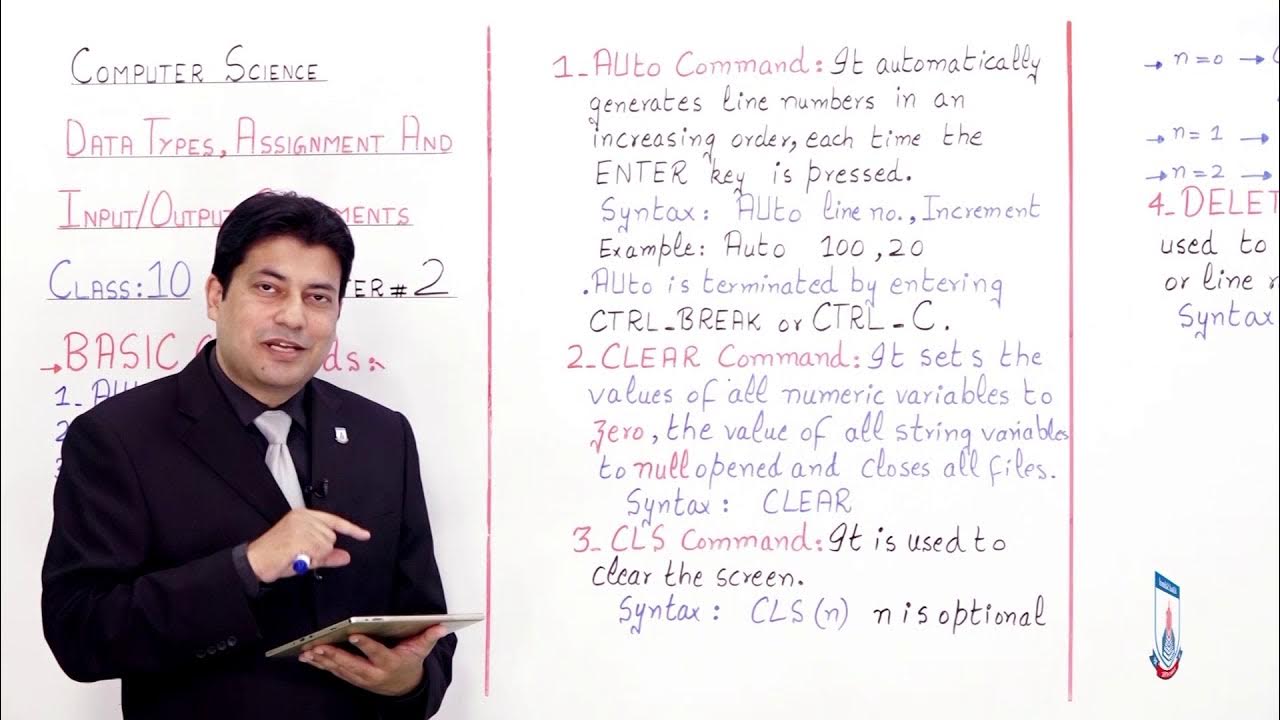 COMPUTER SCIENCE
DATA TYPES, ASSIGNMENT AND
INPUT/OUTPUT
CLASS:10 # 2
→BASIC
1_ AU
2
3
1_ AUto Command: It automatically
generates line numbers in an
increasing order, each time the
ENTER key is pressed.
Syntax: AUto line no., Increment
Example: Auto 100,20
.AUto is terminated by entering
CTRL_BREAK or CTRL-C.
2_CLEAR Command: It sets the
values of all numeric variables to
zero, the value of all string variables
to null opened and closes all files.
Syntax: CLEAR
3_ CLS Command: It is used to
clear the screen.
Syntax: CLS (n) n is optional
→ n=0 →
→ n=1 →
→ n=2 →
4_DELET
used to
or line
Syntax